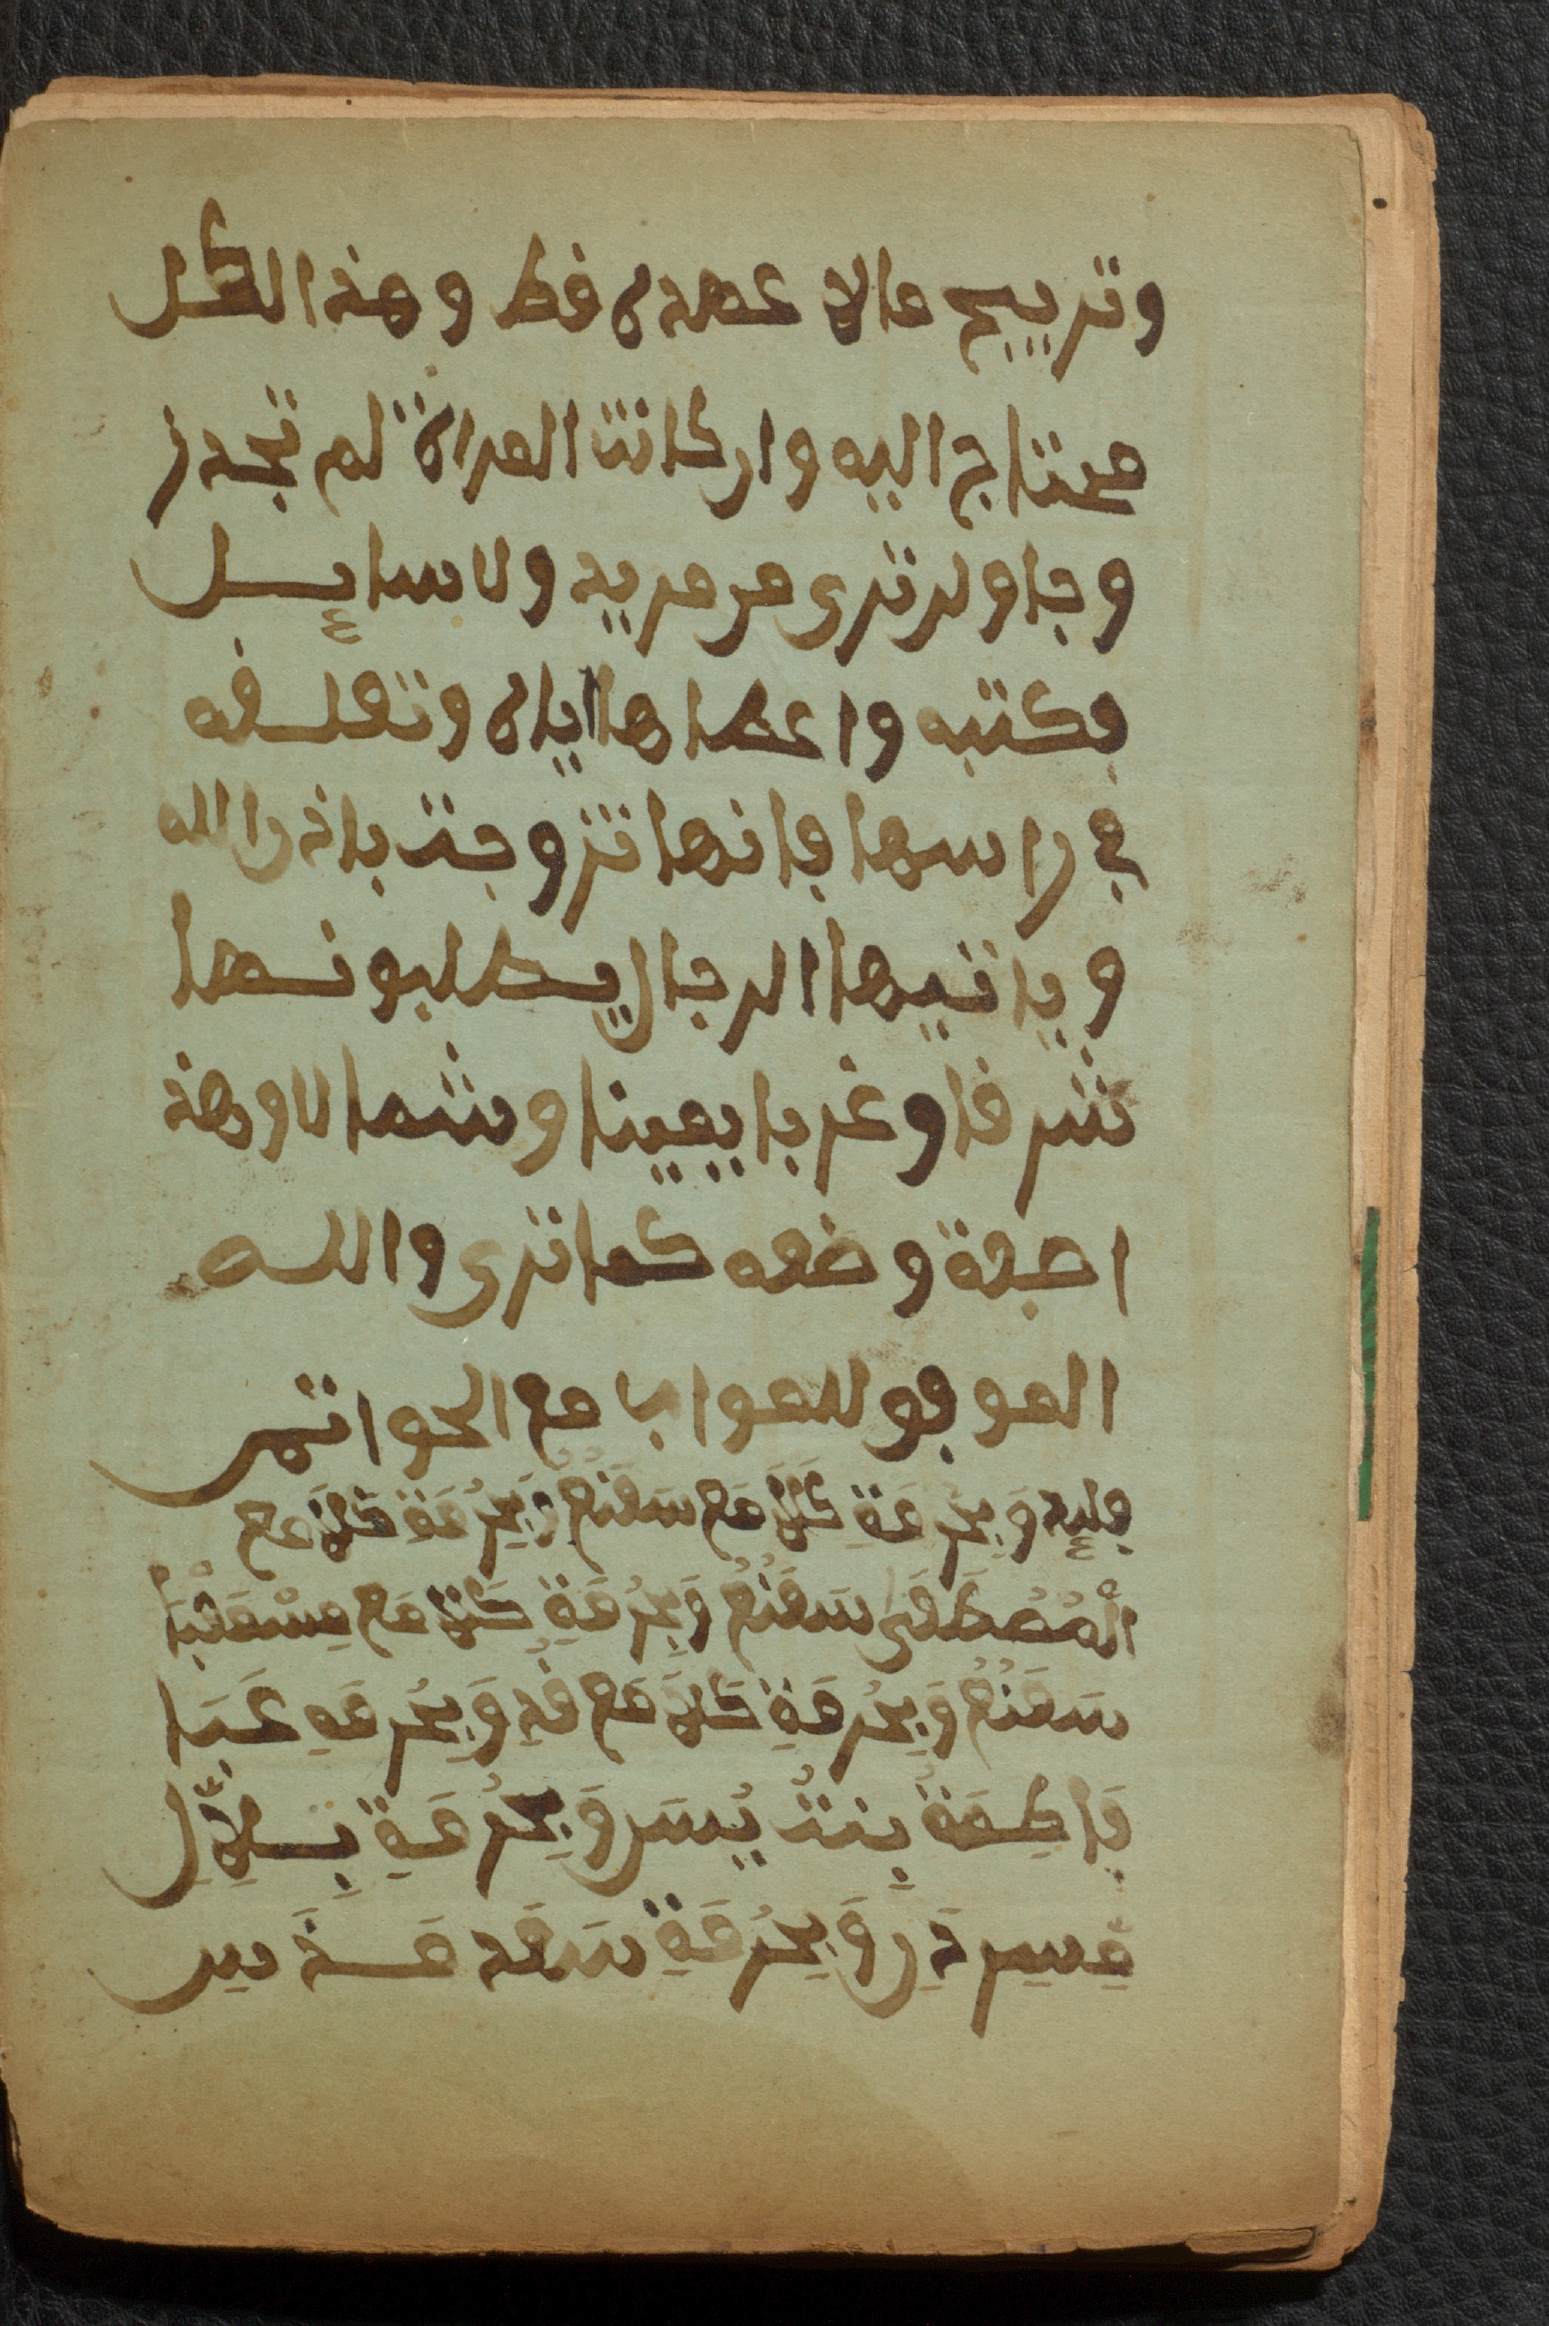 وتربيح مالا عهده فط وهذ الكل
محتاج اليه وان كانت المراة لم تجد ز
وجا ولم ترى من مريد ولا سايل
فكتبه واعطاها اياه وتعلقه
في راسها فانها تزوجت باذن الله
وياتيها الرجال يطلبونها
شرفا وغربا يمينا وشمالا وهذ
احفة وضعه كما ترى والله
الموفق للصواب مع الخواتم
فليد وَبِحُرْمَةِ كَلاَ مَع سَقَنُعُ وَبِحُرْمَةِ كَلاَ مَع
الْمُصْطَفَى سَقَنُعُ وَبِحُرْمَةِ كَلاَ مَع مِسْقَنْبَا
سَقَنُعُ وَبِحُرْمَةِ كَلاَ مَع فَدِ وَبِحُرْمَةِ عَبَا
فَاطِمَةُ بِنْتُ يُسَر وَبِحُرْمَةِ بِلاَلِ
وَبِحُرْمَةِ سَقَد